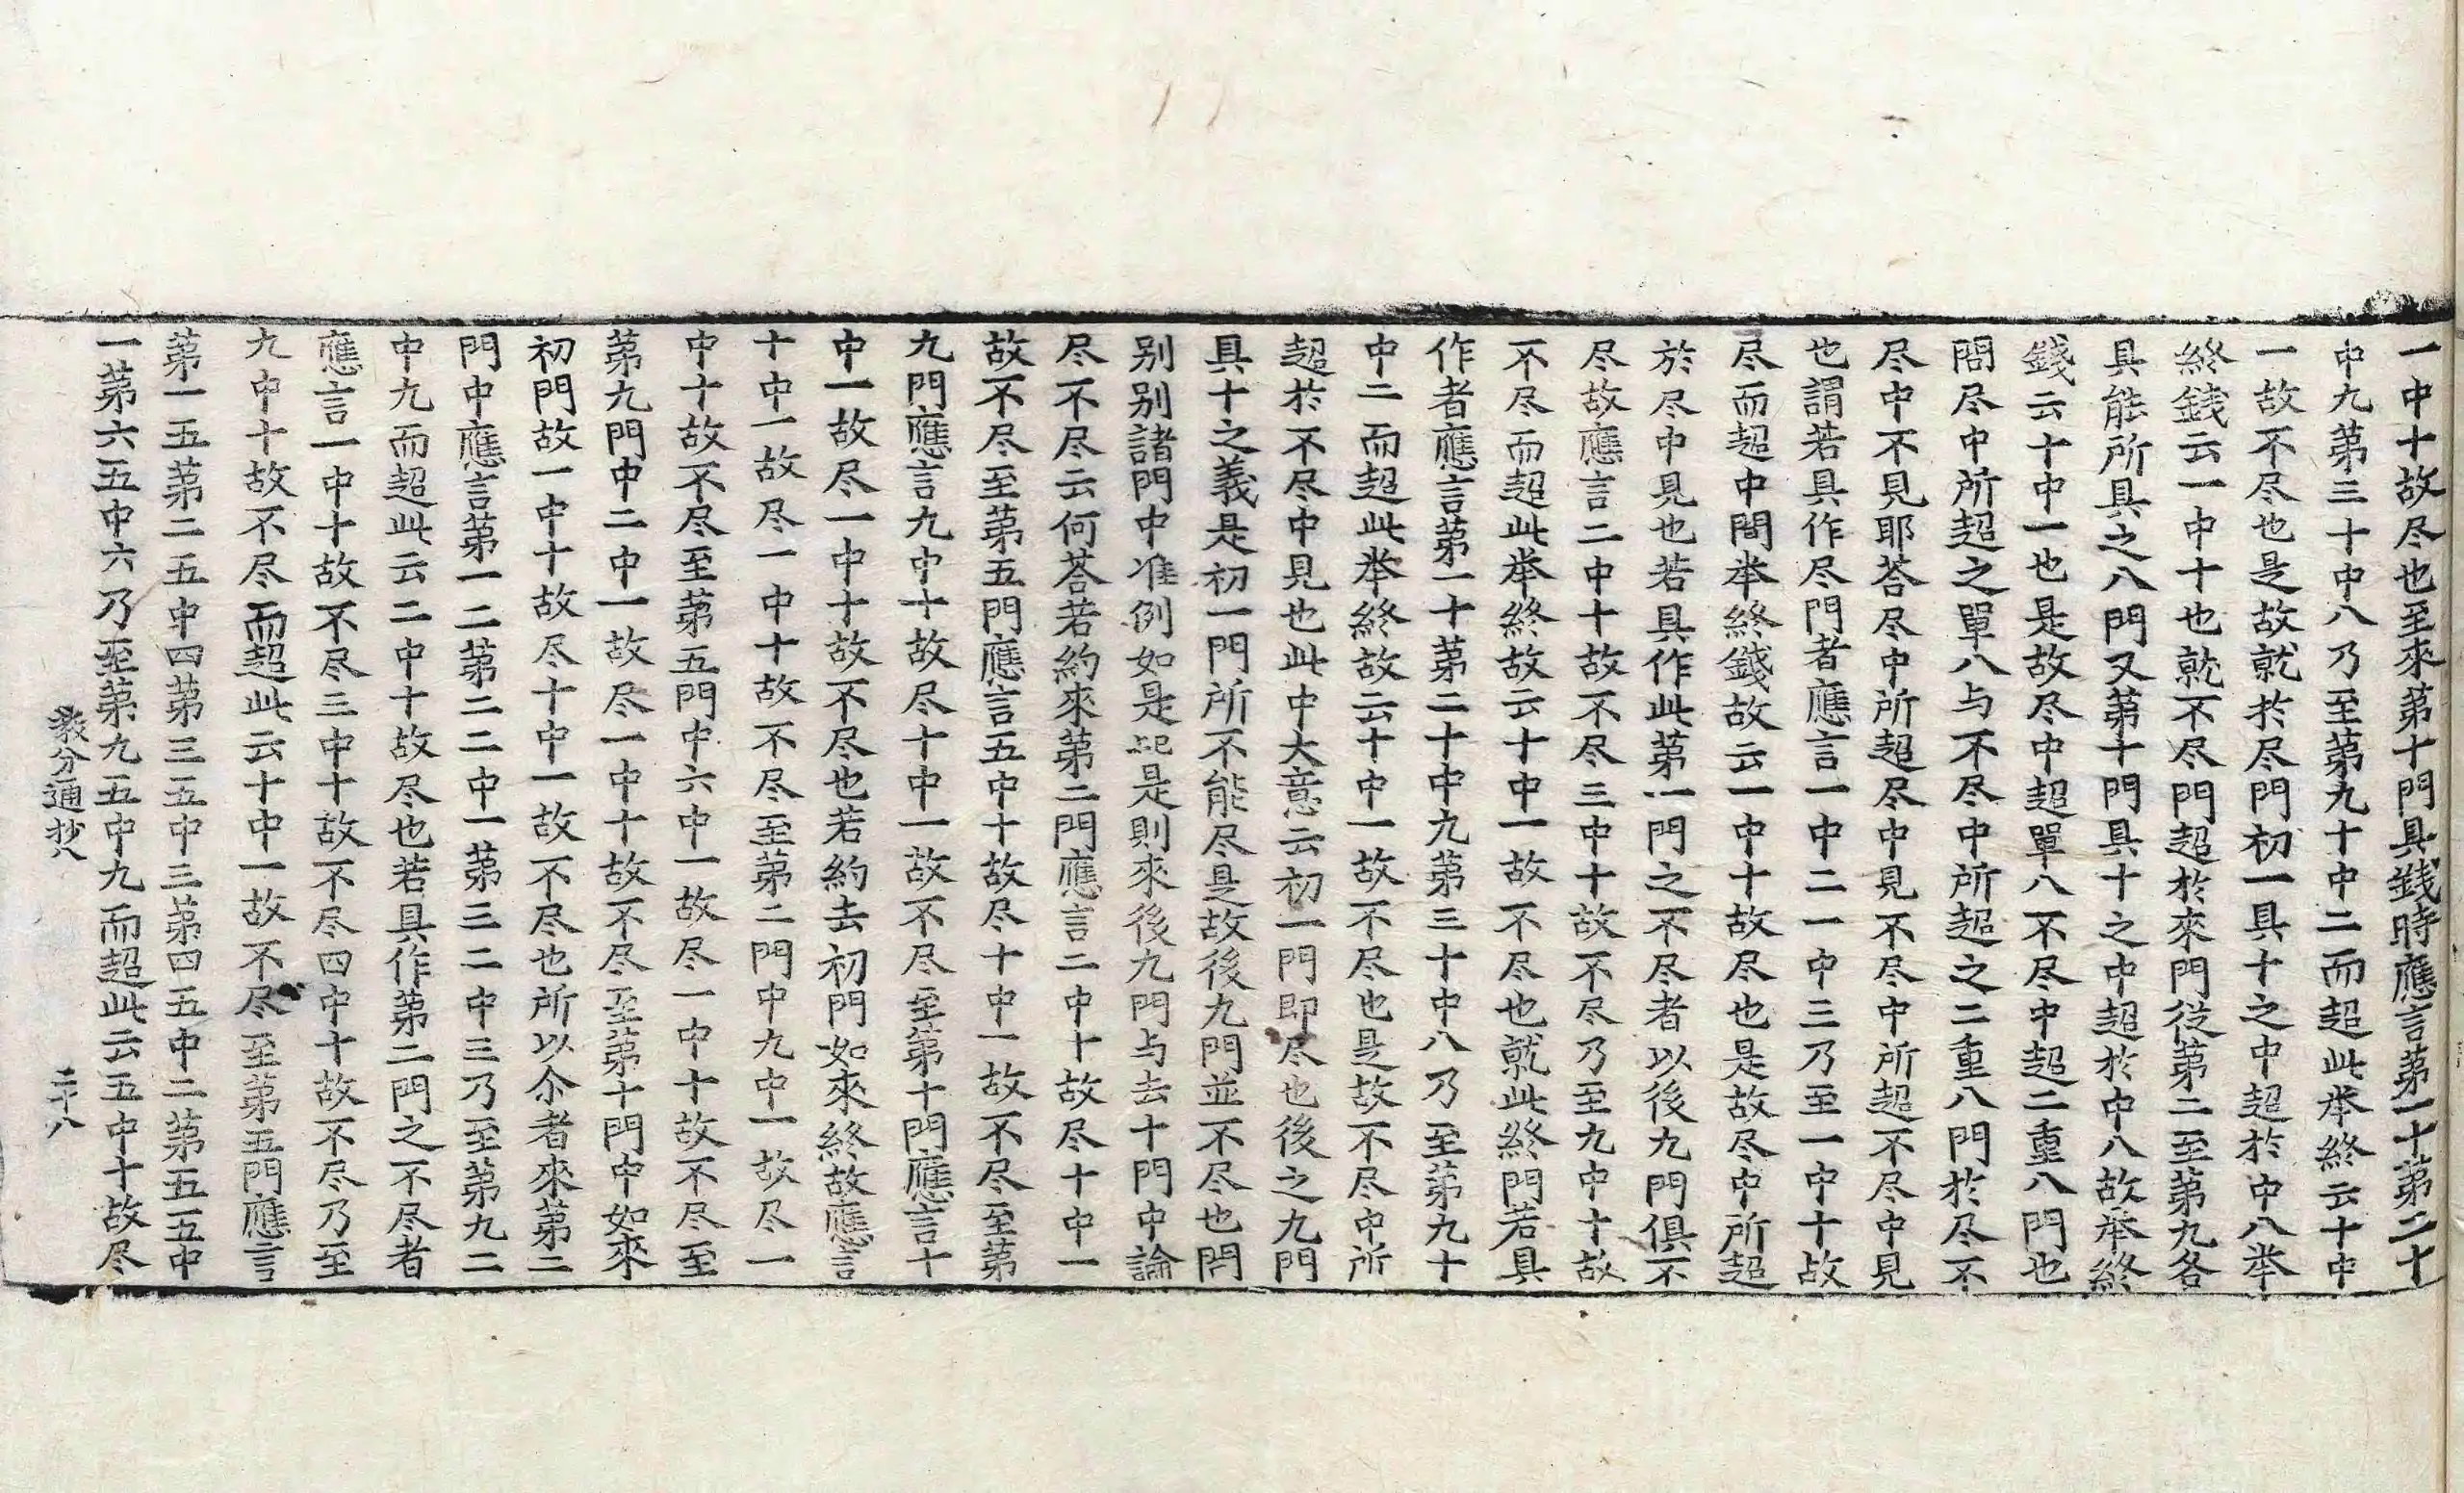 一中十故尽也至來第十門具錢時應言第一十第二十
中九第三十中八乃至第九十中二而超此举終云十中
一故不尽也是故就於尽門初一具十之中超於中八举
終錢云一中十也就不尽門超於來門從第二至第九各
具能所具之八門又第十門具十之中超於中八故举終
錢云十中一也是故尽中超單八不尽中超二重八門也
問尽中所超之單八与不尽中所超之二重八門於尽不
尽中不見耶荅尽中所超尽中見不尽中所超不尽中見
也謂若具作尽門者應言一中二一中三乃至一中十故
尽而超中間举終錢故云一中十故尽也是故尽中所超
於尽中見也若具作此第一門之不尽者以後九門俱不
尽故應言二中十故不尽三中十故不尽乃至九中十故
不尽而超此举終故云十中一故不尽也就此終門若具
作者應言第一十第二十中九第三十中八乃至第九十
中二而超此举終故云十中一故不尽也是故不尽中所
超於不尽中見也此中大意云初一門即尽也後之九門
具十之義是初一門所不能尽是故後九門並不尽也問
别别諸門中准例如是記是則來後九門与去十門中論
尽不尽云何荅若約來第二門應言二中十故尽十中一
故不尽至第五門應言五中十故尽十中一故不尽至第
九門應言九中十故尽十中一故不尽至第十門應言十
中一故尽一中十故不尽也若約去初門如來終故應言
十中一故尽一中十故不尽至第二門中九中一故尽一
中十故不尽至第五門中六中一故尽一中十故不尽至
第九門中二中一故尽一中十故不尽至第十門中如來
初門故一中十故尽十中一故不尽也所以尒者來第二
門中應言第一二第二二中一第三二中三乃至第九二
中九而超此云二中十故尽也若具作第二門之不尽者
應言一中十故不尽三中十故不尽四中十故不尽乃至
九中十故不尽而超此云十中一故不尽至第五門應言
第一五第二五中四第三五中三第四五中二第五五中
一第六五中六乃至第九五中九而超此云五中十故尽
教分通抄八 二十八